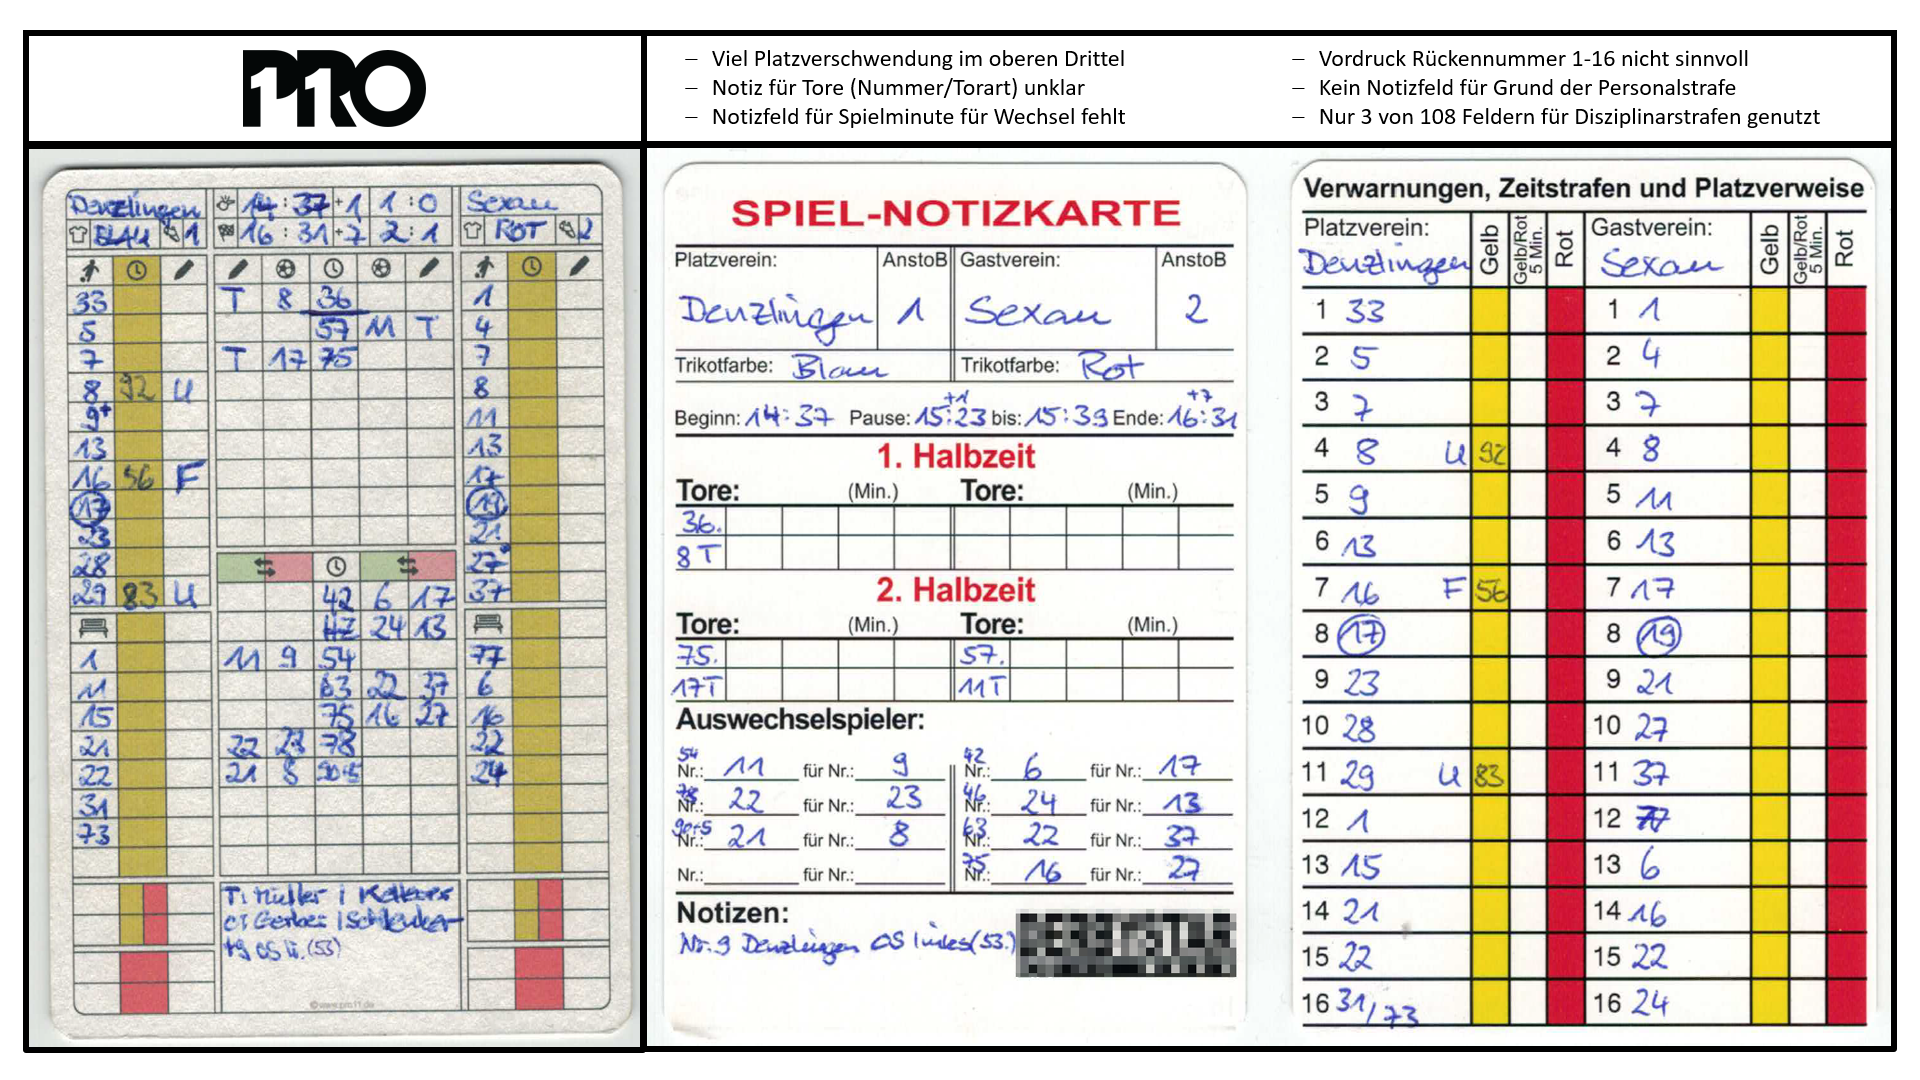 PRO
11
– Viel Platzverschwendung im oberen Drittel
– Notiz für Tore (Nummer/Torart) unklar
– Notizfeld für Spielminute für Wechsel fehlt
– Vordruck Rückennummer 1-16 nicht sinnvoll
– Kein Notizfeld für Grund der Personalstrafe
– Nur 3 von 108 Feldern für Disziplinarstrafen genutzt
Denzlingen 14 : 37 +1 1 : 0 Sexau
BLAU 1 16 : 31 +7 2 : 1 ROT 2
33 T 8 36 1
5 57 11 T 4
7 T 17 75 7
8 92 U 8
9+ 11
13 13
16 56 F 17
17 19
23 21
28 27
29 83 U 42 6 17 37
24 13
1 11 9 54 77
11 63 22 37 6
15 75 16 27 16
21 22 23 78 22
22 21 8 90+5 24
31
73
T: Müller |
C: Gerber |
OS li. (53)
©www.pro11.de
SPIEL-NOTIZKARTE
Platzverein: AnstoB Gastverein: AnstoB
Denzlingen 1 Sexau 2
Trikotfarbe: Blau Trikotfarbe: Rot
+1 +7
Beginn: 14:37 Pause: 15:23 bis: 15:39 Ende: 16:31
1. Halbzeit
Tore: (Min.) Tore: (Min.)
36.
8 T
2. Halbzeit
Tore: (Min.) Tore: (Min.)
75. 57.
17 T 11 T
Auswechselspieler:
54 42
Nr.: 11 für Nr.: 9 Nr.: 6 für Nr.: 17
78 46
Nr.: 22 für Nr.: 23 Nr.: 24 für Nr.: 13
90+5 63
Nr.: 21 für Nr.: 8 Nr.: 22 für Nr.: 37
75
Nr.: für Nr.: Nr.: 16 für Nr.: 27
Notizen:
Nr. 9 Denzlingen OS links (53.)
Verwarnungen, Zeitstrafen und Platzverweise
Platzverein: Gelb Gelb/Rot 5 Min. Rot Gastverein: Gelb Gelb/Rot 5 Min. Rot
Denzlingen Sexau
1 33 1 1
2 5 2 4
3 7 3 7
4 8 U 92 4 8
5 9 5 11
6 13 6 13
7 16 F 56 7 17
8 17 8 19
9 23 9 21
10 28 10 27
11 29 U 83 11 37
12 1 12 77
13 15 13 6
14 21 14 16
15 22 15 22
16 31/73 16 24